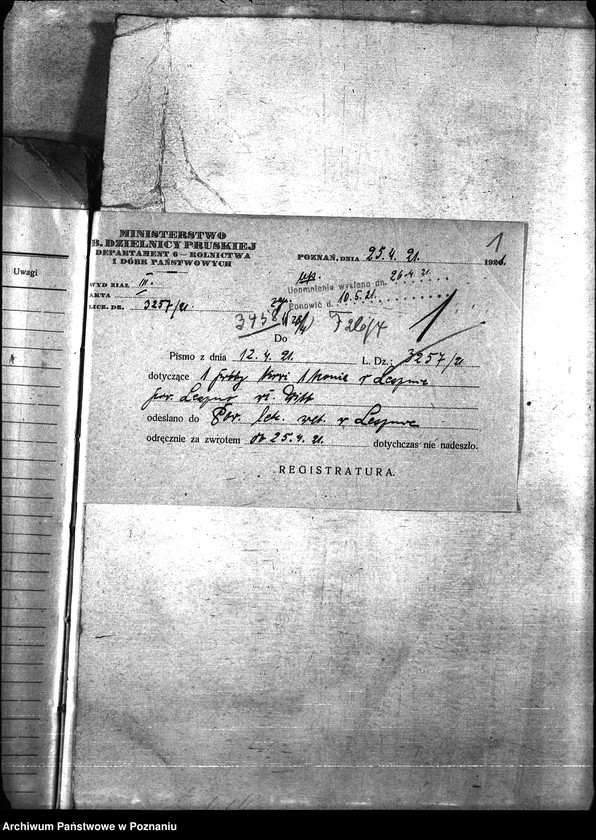 Uwagi
MINISTERSTWO
B. DZIELNICY PRUSKIEJ
DEPARTAMENT 6 — ROLNICTWA
I DÓBR PAŃSTWOWYCH
POZNAŃ, DNIA 25.4.21. 192
1
WYDZIAŁ III.
AKTA I
LICZ. DZ. 3257/21
Upomnienie wysłano dn. 26.4.21.
Ponowić d. 10.5.21.
3458
Do
Pismo z dnia 12.4.21. L. Dz.: 3257/21
dotyczące 1 próby krwi 1 konia z
pow. Witt
odesłano do Pow. lek. wet. w
odręcznie za zwrotem do 25.4.21. dotychczas nie nadeszło.
REGISTRATURA.
Archiwum Państwowe w Poznaniu